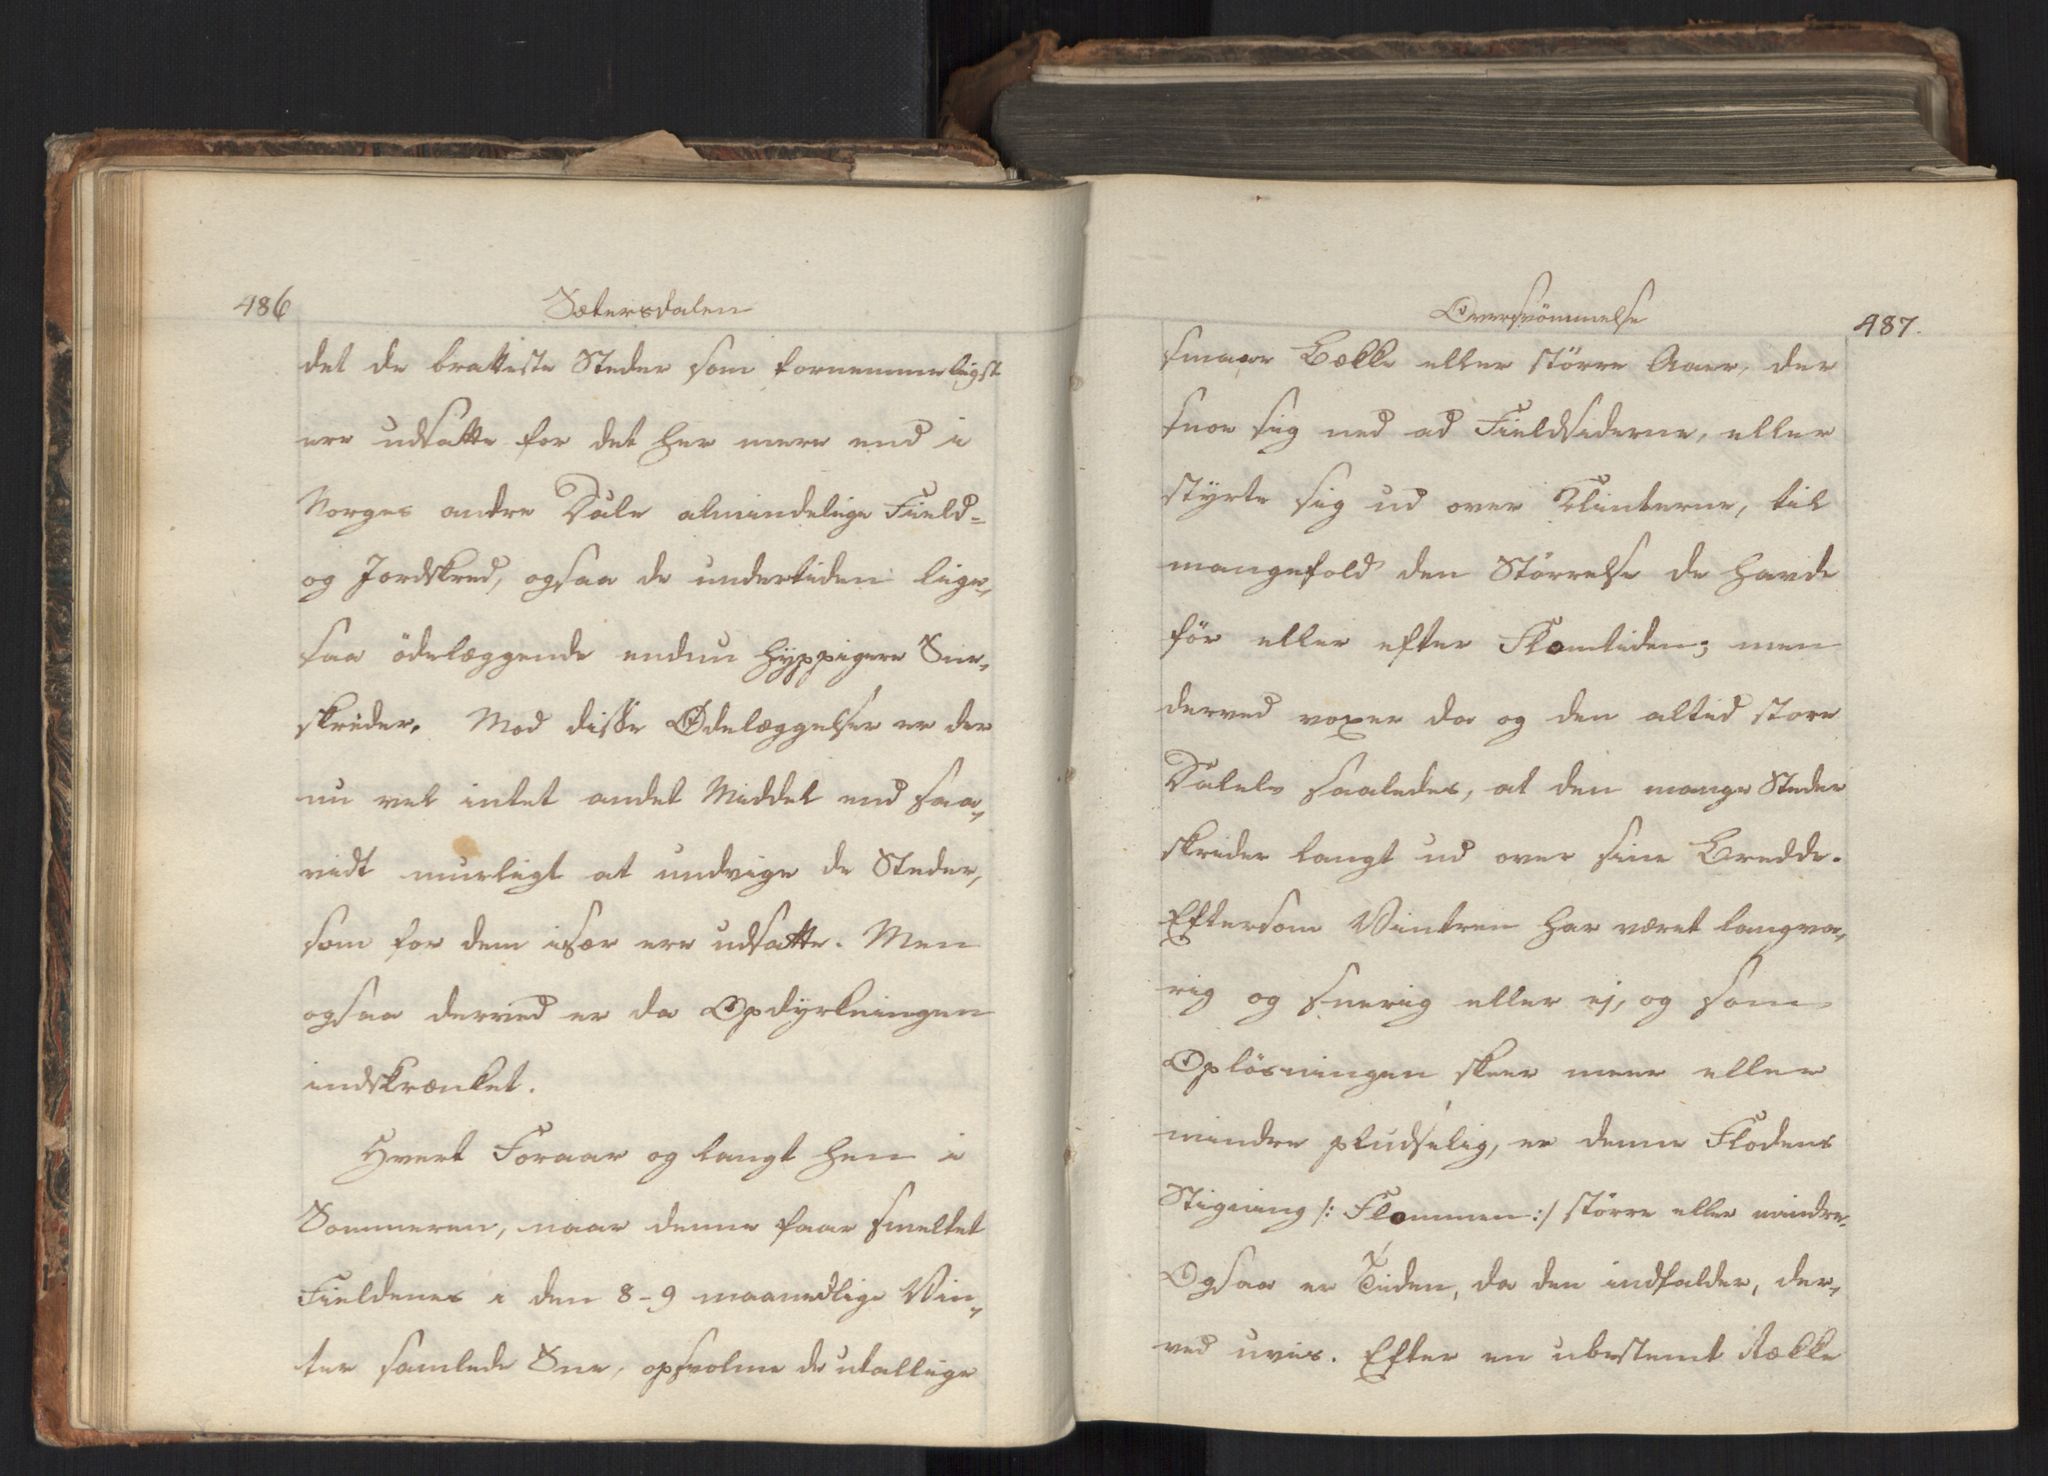 486
Sætersdalen
det de bratteste Steder som fornemmeligst
ere udsatte for det her mere end i
Norges andre Dale almindelige Field-
og Jordskred, ogsaa de undertiden lige-
saa ödelæggende endnu hyppigere Snee-
skreder. Mod disse Ødelæggelser er der
nu vel intet andet Middel end saa-
vidt mueligt at undvige de Steder,
som for dem især ere udsatte. Men
ogsaa derved er da Opdyrkningen
indskrænket.
Hvert Foraar og langt hen i
Sommeren, naar denne faar smeltet
Fieldenes i den 8-9 maanedlige Vin-
ter samlede Sne, opsvolme de utallige
Oversvömmelse
487.
smaae Bække eller större Aaer, der
snoe sig ned ad Fieldsiderne, eller
styrte sig ud over Klinterne, til
mangefold den Störrelse de havde
för eller efter Flomtiden; men
derved voxer da og den altid store
Dalelv saaledes, at den mange Steder
skrider langt ud over sine Bredde.
Eftersom Vintren har været langva-
rig og sneerig eller ej, og som
Oplösningen skeer meer eller
mindre pludselig, er denne Flodens
Stigning /: Flommen :/ större eller mindre.
Ogsaa er Tiden, da den indfalder, der-
ved uvis. Efter en ubestemt Række